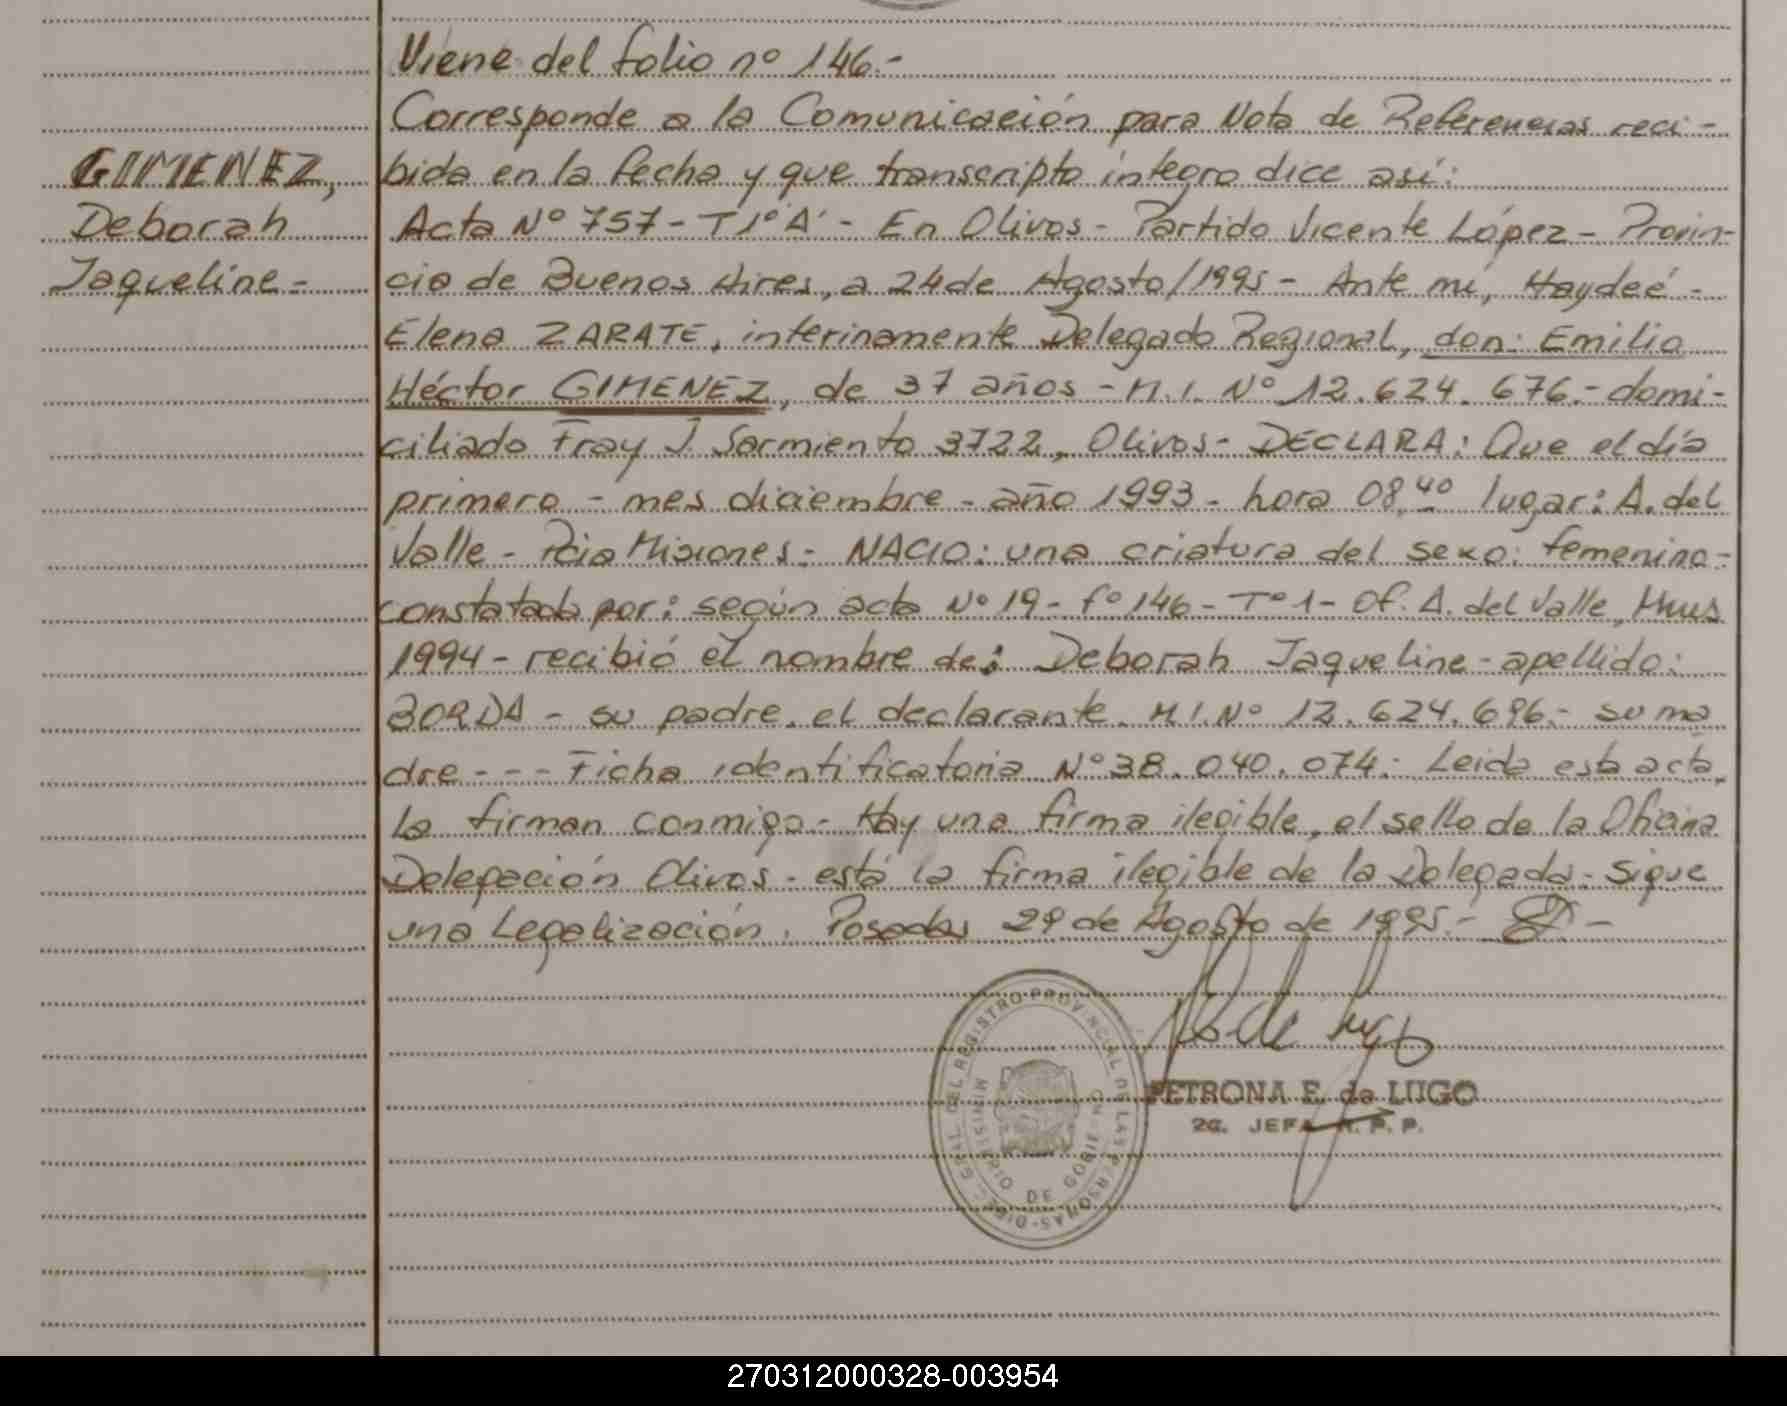 Viene del folio nº 146.-
Corresponde a la Comunicación para Nota de Referencias reci-
bida en la fecha y que transcripto íntegro dice así:
GIMENEZ,
Deborah
Jaqueline-
Acta Nº 757- T1º A - En Olivos - Partido Vicente López - Provin-
cia de Buenos Aires, a 24 de Agosto/1995 - Ante mí, Haydeé -
Elena ZARATE, interinamente Delegado Regional, don: Emilio
Héctor GIMENEZ, de 37 años - M.I. Nº 12.624.676.- domi-
ciliado Fray J. Sarmiento 3722, Olivos - DECLARA: Que el día
primero - mes diciembre - año 1993 - hora 08,40 lugar: A. del
Valle - Pcia Misiones - NACIO: una criatura del sexo: femenino -
constatada por: según acta Nº 19- fº 146- Tº 1- Of. A. del Valle, Mnes
1994 - recibió el nombre de: Deborah Jaqueline - apellido:
BORDA - su padre, el declarante, M.I. Nº 12.624.696.- su ma
dre - - - Ficha identificatoria Nº 38.040.074.- Leida esta acta,
la firman conmigo.- Hay una firma ilegible, el sello de la Oficina
Delegación Olivos - está la firma ilegible de la Delegada - Sigue
una Legalización. Posadas 29 de Agosto de 1995.-
DIREC. GRAL. DEL REGISTRO PROVINCIAL DE LAS PERSONAS
MINISTERIO DE GOBIERNO
PETRONA E. de LUGO
2a. JEFA R. P. P.
270312000328-003954